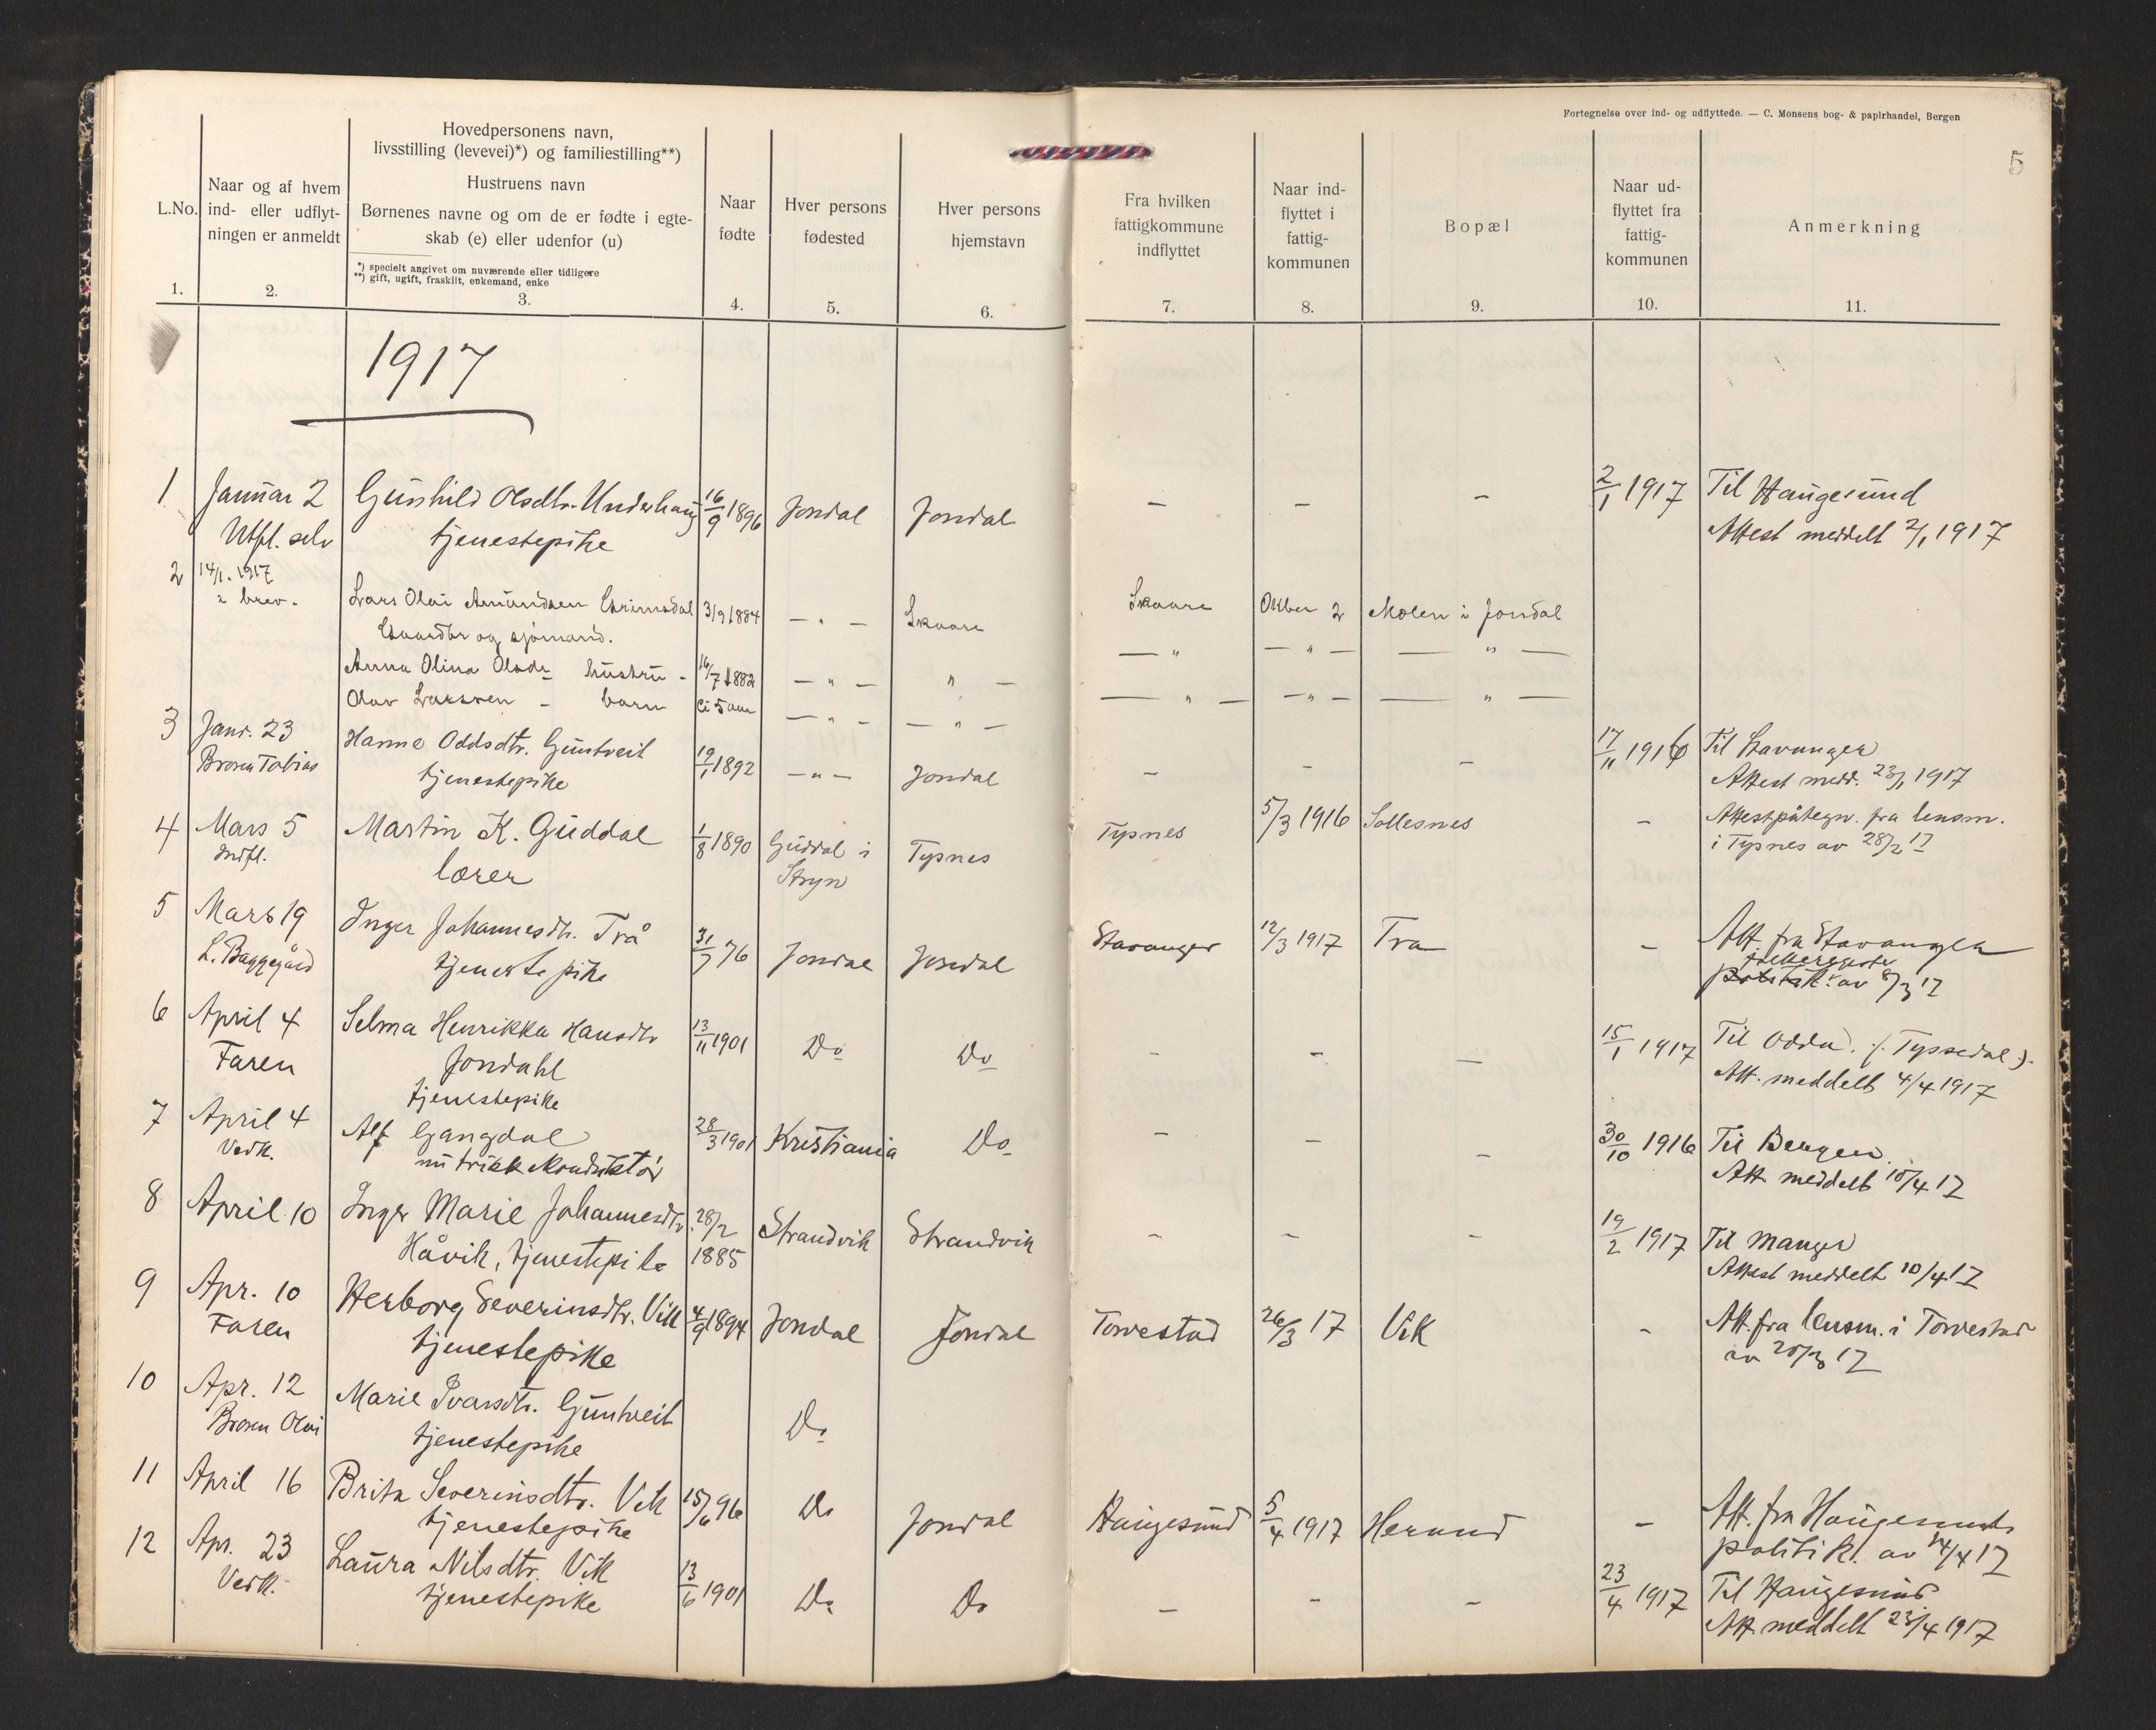 Fortegnelse over ind- og udflyttede. — C. Monsens bog- & papirhandel, Bergen
5
L.No.
1.
Naar og af hvem
ind- eller udflyt-
ningen er anmeldt
2.
Hovedpersonens navn,
livsstilling (levevei)*) og familiestilling**)
Hustruens navn
Børnenes navne og om de er fødte i egte-
skab (e) eller udenfor (u)
*) specielt angivet om nuværende eller tidligere
**) gift, ugift, fraskilt, enkemand, enke
3.
Naar
fødte
4.
Hver persons
fødested
5.
Hver persons
hjemstavn
6.
Fra hvilken
fattigkommune
indflyttet
7.
Naar ind-
flyttet i
fattig-
kommunen
8.
Bopæl
9.
Naar ud-
flyttet fra
fattig-
kommunen
10.
Anmerkning
11.
1917
1 Januar 2 Gunhild Olsdtr. Underhaug 16/9 1896 Jondal Jondal — — — 2/1 1917 Til Haugesund
Utfl. selv tjenestepike Attest meddelt 2/1 1917
2 14/1. 1917 Lars Olai Amundsen 3/9 1884 — " — Skaare Skaare Oktber 2 Molen i Jondal
brev. og sjømand.
Anna Olina Olsdr hustru - 16/7 1882 — " — " — — " — " — — " —
Olav Larssen - barn 5 aar — " — — " — — " — — " — — " —
3 Janr. 23 Hanne Oddsdtr. Guntveit 19/1 1892 — " — Jondal — — — 17/11 1916 Til Stavanger
Broren Tobias tjenestepike Attest medd. 23/1 1917
4 Mars 5 Martin K. Guddal 1/8 1890 Guddal i Tysnes Tysnes 5/3 1916 Sollesnes — Attestpåtegn. fra lensm.
Indfl. lærer Stryn i Tysnes av 28/2 17
5 Mars 19 Inger Johannesdtr. Trå 31/7 76 Jondal Jondal Stavanger 12/3 1917 Tra — Att. fra Stavanger
L. Baggegård tjenestepike folkeregister
politik. av 8/3 17
6 April 4 Selma Henrikka Hansdtr 13/11 1901 Do Do — — — 15/1 1917 Til Odda. (Tyssedal).
Faren Jondahl Att. meddelt 4/4 1917
tjenestepike
7 April 4 Alf Gangdal 28/3 1901 Kristiania Do — — — 30/10 1916 Til Bergen
Vedk. Att meddelt 10/4 17
8 April 10 Inger Marie Johannesdtr 28/2 Strandvik Strandvik — — — 19/2 1917 Til Manger
Håvik, tjenestepike 1885 Attest meddelt 10/4 17
9 Apr. 10 Herborg Severinsdtr. Vik 4/9 1894 Jondal Jondal Torvestad 26/3 17 Vik — Att. fra lensm. i Torvestad
Faren tjenestepike av 20/3 17
10 Apr. 12 Marie Ivarsdtr. Guntveit Do
Broren Olai tjenestepike
11 April 16 Brita Severinsdtr. Vik 15/6 96 Do Jondal Haugesund 5/4 1917 Herand — Att. fra Haugesunds
tjenestepike politik. av 14/4 17
12 Apr. 23 Laura Nilsdtr. Vik 13/6 1901 Do Do — — — 23/4 1917 Til Haugesund
Vedk. tjenestepike Att. meddelt 23/4 1917